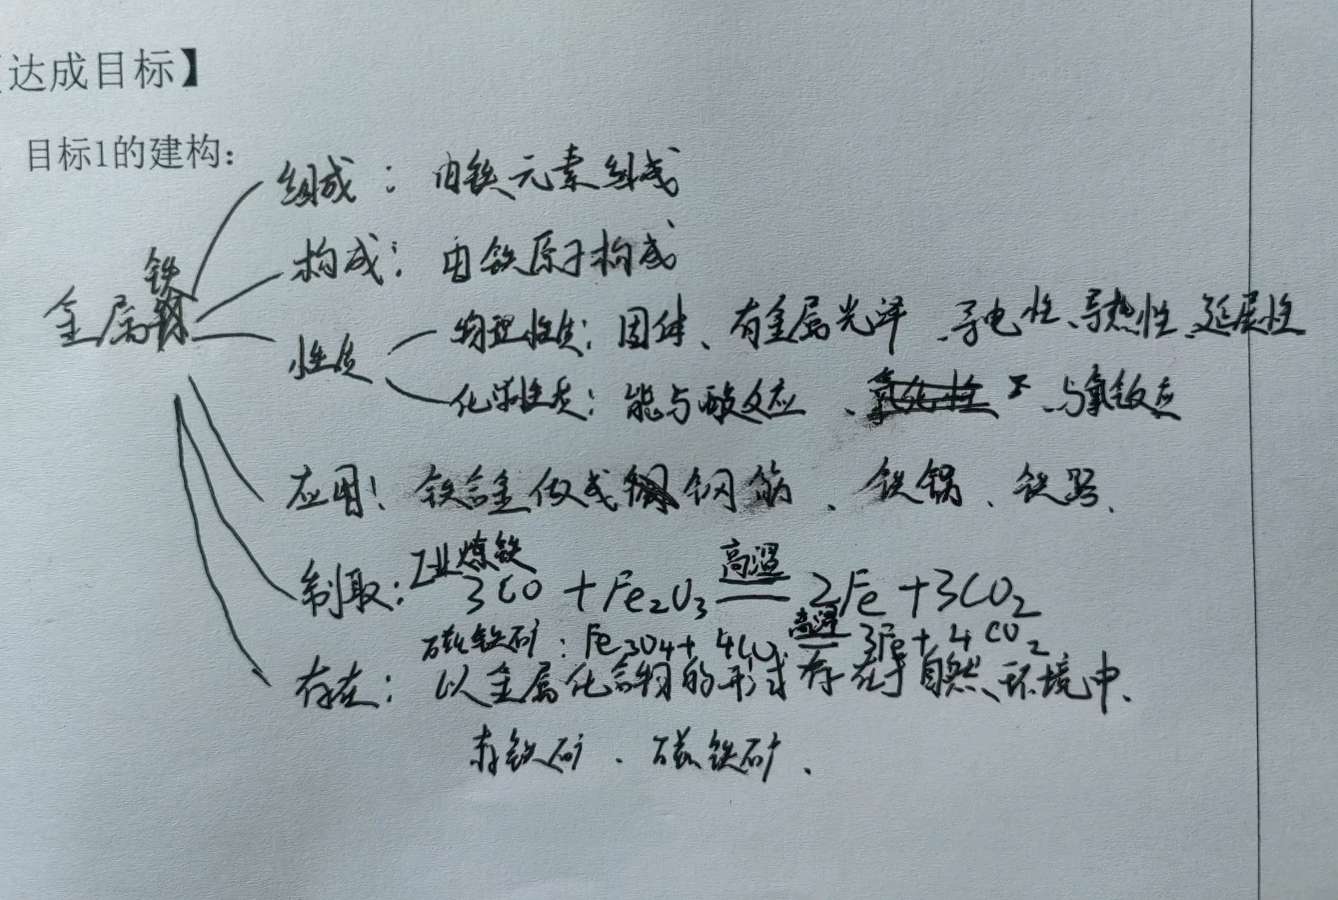 达成目标】
目标1的建构：
组成：由铁元素组成
构成：由铁原子构成
金属铁
性质
物理性质：固体、有金属光泽、导电性、导热性、延展性
化学性质：能与酸反应、氧化性、与氧气反应
应用：铁合金做成钢筋、铁锅、铁路、
制取：工业炼铁
3CO + Fe₂O₃ 高温 2Fe + 3CO₂
磁铁矿：Fe3O4 + 4CO 高温 3Fe + 4CO₂
存在：以金属化合物的形式存在于自然环境中、
赤铁矿、磁铁矿、